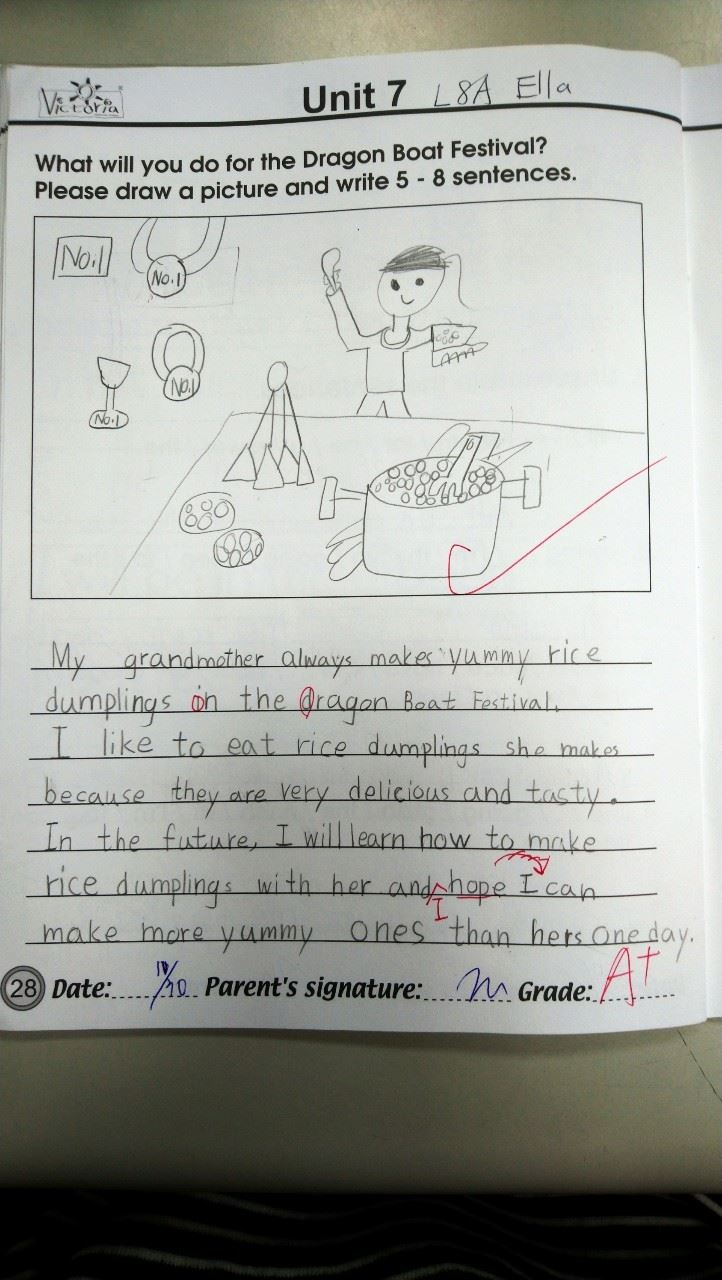 Victoria
Unit 7 L8A Ella
What will you do for the Dragon Boat Festival?
Please draw a picture and write 5 - 8 sentences.
No.1
No.1
No.1
No.1
My grandmother always makes yummy rice
dumplings on the Dragon Boat Festival.
I like to eat rice dumplings she makes
because they are very delicious and tasty.
In the future, I will learn how to make
rice dumplings with her and hope I can
I
make more yummy ones than hers one day.
28 Date: 10/10 Parent's signature: Grade: A+